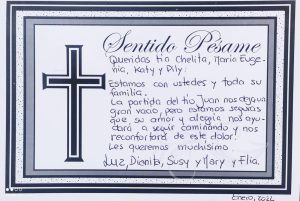 Sentido Pésame
Queridas tía Chelita, María Euge-
nia, Katy y Pily:
Estamos con ustedes y toda su
familia.
La partida del tío Juan nos deja un
gran vacío, pero estamos seguras
que su amor y alegría nos ayu-
dará a seguir caminando y nos
reconfortará de este dolor.
Les queremos muchísimo.
Luz, Dianita, Susy y Mary y Elia.
Enero, 2022